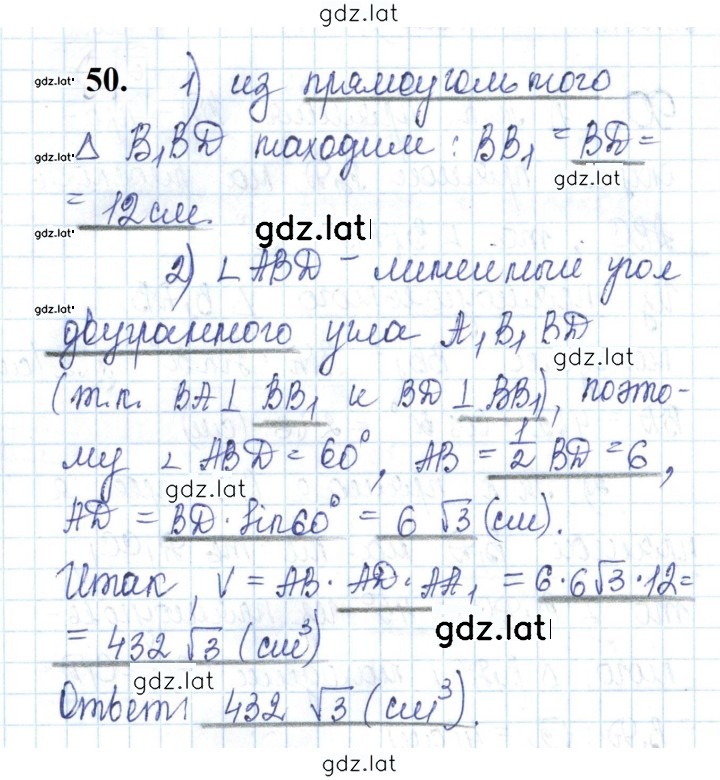 gdz.lat
gdz.lat 50. 1) из прямоугольного
gdz.lat Δ B₁BD находим : BB₁ = BD =
gdz.lat
gdz.lat = 12 см. gdz.lat
2) ∠ ABD – линейный угол
gdz.lat
двугранного угла A₁B₁BD
gdz.lat
(т.к. BA ⊥ BB₁ и BD ⊥ BB₁), поэто-
му ∠ ABD = 60°, AB = 1/2 BD = 6,
gdz.lat
AD = BD · sin 60° = 6 √3 (см).
Итак, V = AB · AD · AA₁ = 6 · 6√3 · 12 =
= 432 √3 (см³) gdz.lat
gdz.lat
Ответ: 432 √3 (см³).
gdz.lat